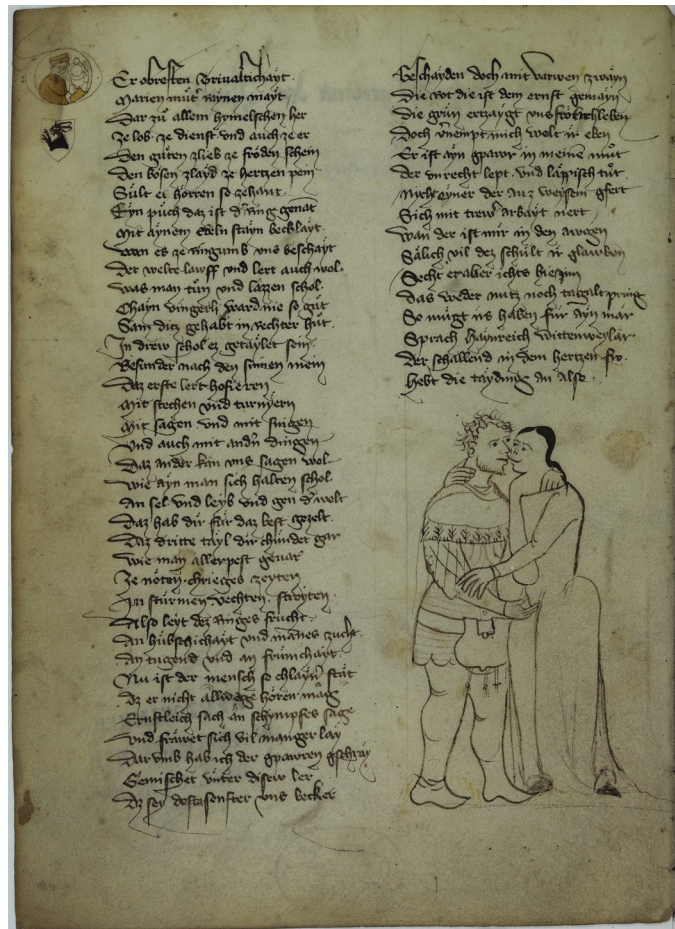 Er obresten Trivaltichayt
Marien můter raynen mayt
Dar zů allem himelschen her
Ze lob ze dienst und auch ze er
Den gůten ze lieb ze fröden schein
Den bösen ze layd ze hertzen pein
Sült es hörren so zehant
Eyn půch daz ist der ring genāt
Mit aynem edeln stayn becklayt
Wan es ze ringumb uns beschayt
Der welte lawff und lert auch wol
Was man tůn und lazzen schol
Chayn vingerli ward nie so gůt
Sam ditz gehabt in rechter hůt
In drew schol es getaylet sein
Besunder nach den sinnen mein
Daz erste lert hofieren
Mit stechen und turnyern
Mit sagen und mit singen
Und auch mit andern dingen
Daz ander kan uns sagen wol
Wie ayn man sich halten schol
An sel und leyb und gen der welt
Daz hab dir für daz best gezelt
Daz dritte tayl dir chündet gar
Wie man allerpest gevar
Ze nöten chrieges zeyten
In stürmen vechten streyten
Also leyt des ringes frucht
An hübschichayt und mānes zucht
An tugend und an frümchayt
Nu ist der mensch so chlayner stät
Dz er nicht allwege hören mag
Ernstleich sach ān schympfes sage
Und fräwet sich vil manger lay
Dar umb hab ich der gpawren gschray
Gemischet unter disew ler
Dz sey dest senfter uns becker
Geschayden doch mit varwen zwayn
Die rot die ist dem ernst gemayn
Die grün ertzaygt uns törpelleben
Doch vernempt mich welt ir eben
Er ist ayn gpawr in meinē můt
Der unrecht lept und läppisch tůt
Nicht eyner der auz weysem gfert
Sich mit trewer arbayt nert
Wan der ist mir in den awgen
Sälich vil dez schült ir glawben
Secht er aber ichts hie inn
Das weder nutz noch tagalt pring
So mügt irs haben für ayn mär
Sprach Haynreich Wittenweylär
Der schallend in dem hertzen fro
Hebt die täyding an also